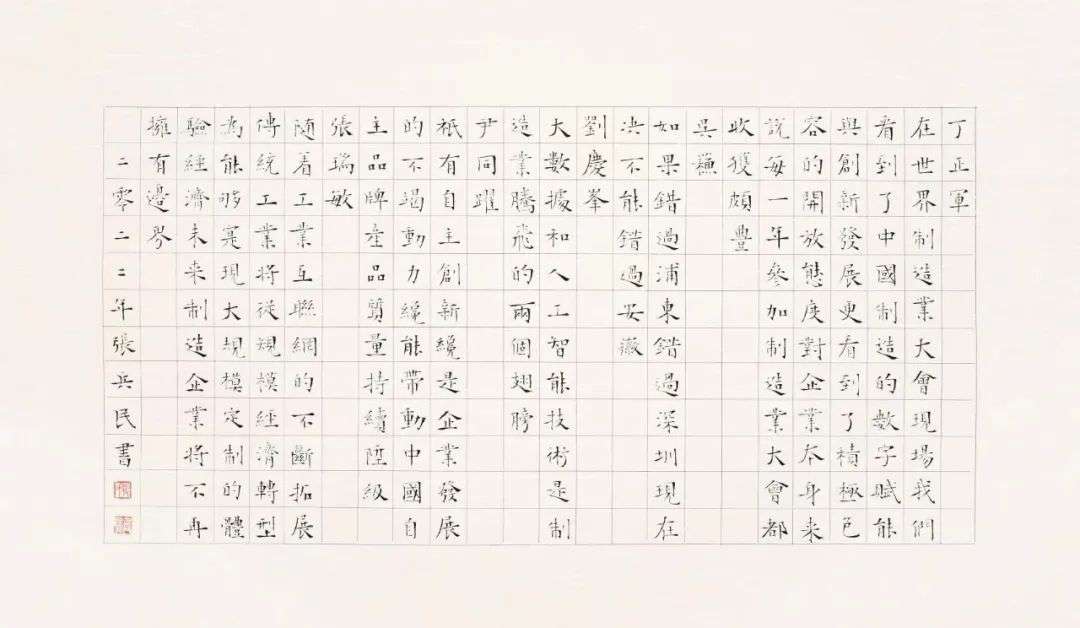 丁正軍
在世界制造業大會現場我們
看到了中國制造的數字賦能
與創新發展更看到了積極包
容的開放態度對企業本身來
說每一年參加制造業大會都
收獲頗豐
吳
如果錯過浦東錯過深圳現在
決不能錯過安徽
劉慶峯
大數據和人工智能技術是制
造業騰飛的兩個翅膀
尹同躍
祇有自主創新纔是企業發展
的不竭動力纔能帶動中國自
主品牌產品質量持續陞級
張瑞敏
随着工業互聯網的不斷拓展
傳統工業將從規模經濟轉型
為能够寔現大規模定制的體
驗經濟未來制造企業將不再
擁有邊界
二零二二年張兵民書